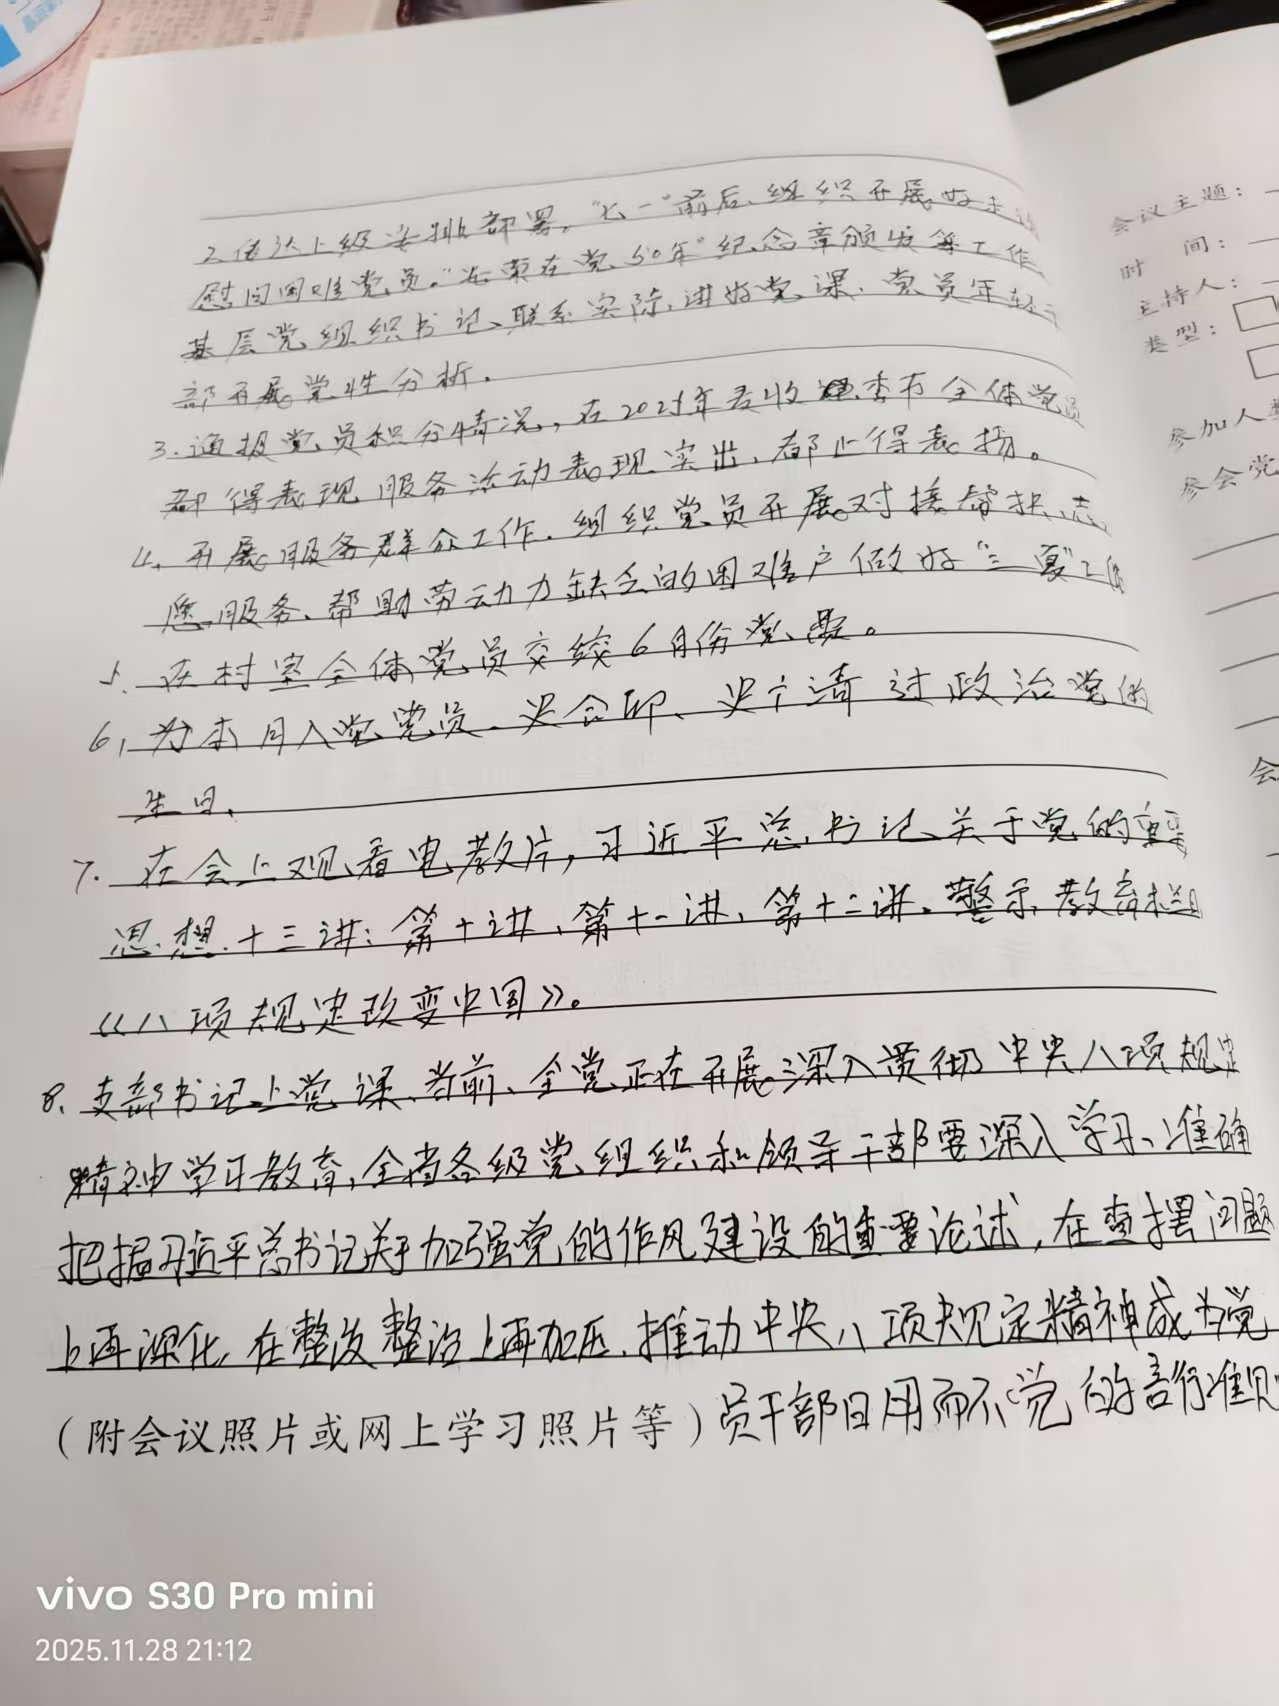 2.传达上级安排部署。"七一"前后、组织开展好走访
慰问困难党员。"光荣在党50年"纪念章颁发等工作
基层党组织书记、联系实际、讲好党课、党员年轻干
部开展党性分析.
3.通报党员积分情况，在2025年麦收季节全体党员
都得表现服务活动表现突出、都让得表扬。
4.开展服务群众工作.组织党员开展对接帮扶、志
愿服务、帮助劳动力缺乏的困难户做好"三夏"工作
5.在村室全体党员交缴6月份党费。
6、为本月入党党员、史会印、史 清过政治党的
生日、
7.在会上观看电教片，习近平总书记关于党的重要
思想十三讲：第十讲、第十一讲、第十二讲。警示教育栏目
《八项规定改变中国》。
8.支部书记上党课、当前、全党正在开展深入贯彻中央八项规定
精神学习教育，全省各级党组织和领导干部要深入学习、准确
把握习近平总书记关于加强党的作风建设的重要论述，在查摆问题
上再深化，在整改整治上再加压，推动中央八项规定精神成为党
（附会议照片或网上学习照片等）员干部日用而不觉的言行准则
会议主题：
时 间：
主持人：
类型：
参加人
参会党
会
vivo S30 Pro mini
2025.11.28 21:12